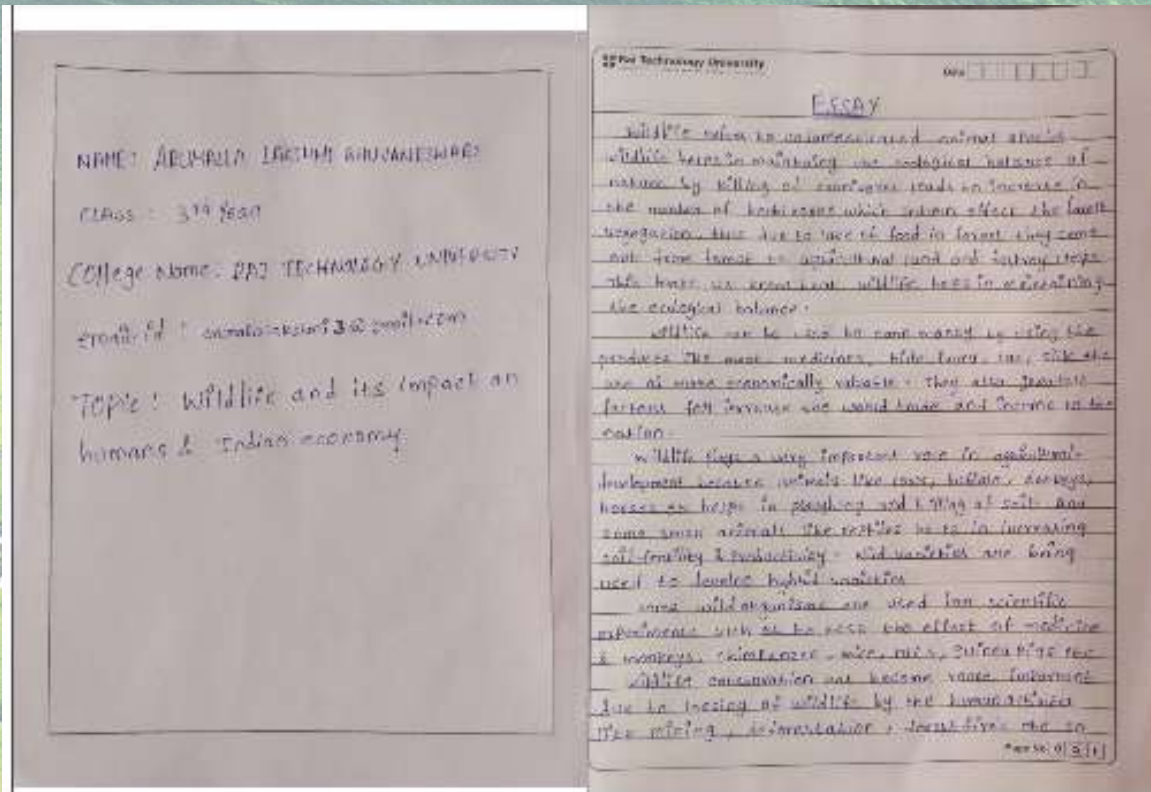 NAME: ARUMALLA LAKSHMI BHUVANESWARI
CLASS: 3rd Year
College Name: PAI TECHNOLOGY UNIVERSITY
Topic: Wildlife and its impact on
humans & Indian economy
Pai Technology University
Date
ESSAY
Wildlife refers to undomesticated animal species
wildlife helps in maintaining the ecological balance of
nature by killing of carnivores leads to increase in
the number of herbivores which inturn effect the
due to lack of food in forest they come
out from forest to agricultural land and
This makes us know that wildlife in maintaining
the ecological balance.
Wildlife can be used to earn money by using the
products like meat, medicines, hide, lac, silk
are of more economically valuable. They also
increase the world trade and income to the
nation.
Wildlife plays a very important role in agricultural
development because animals like cows, buffalo, donkeys,
horses helps in ploughing and tilling of soil. And
some small animals like reptiles in increasing
soil fertility & productivity. Wild varieties are being
used to develop hybrid varieties
some wild organisms are used for scientific
experiments such as to test the effect of medicine
& monkeys, chimpanzee, mice, rats, guinea pigs etc
Wildlife conservation has become more important
due to loosing of wildlife by the human activities
like mining, deforestation, forest fires etc so
Page No